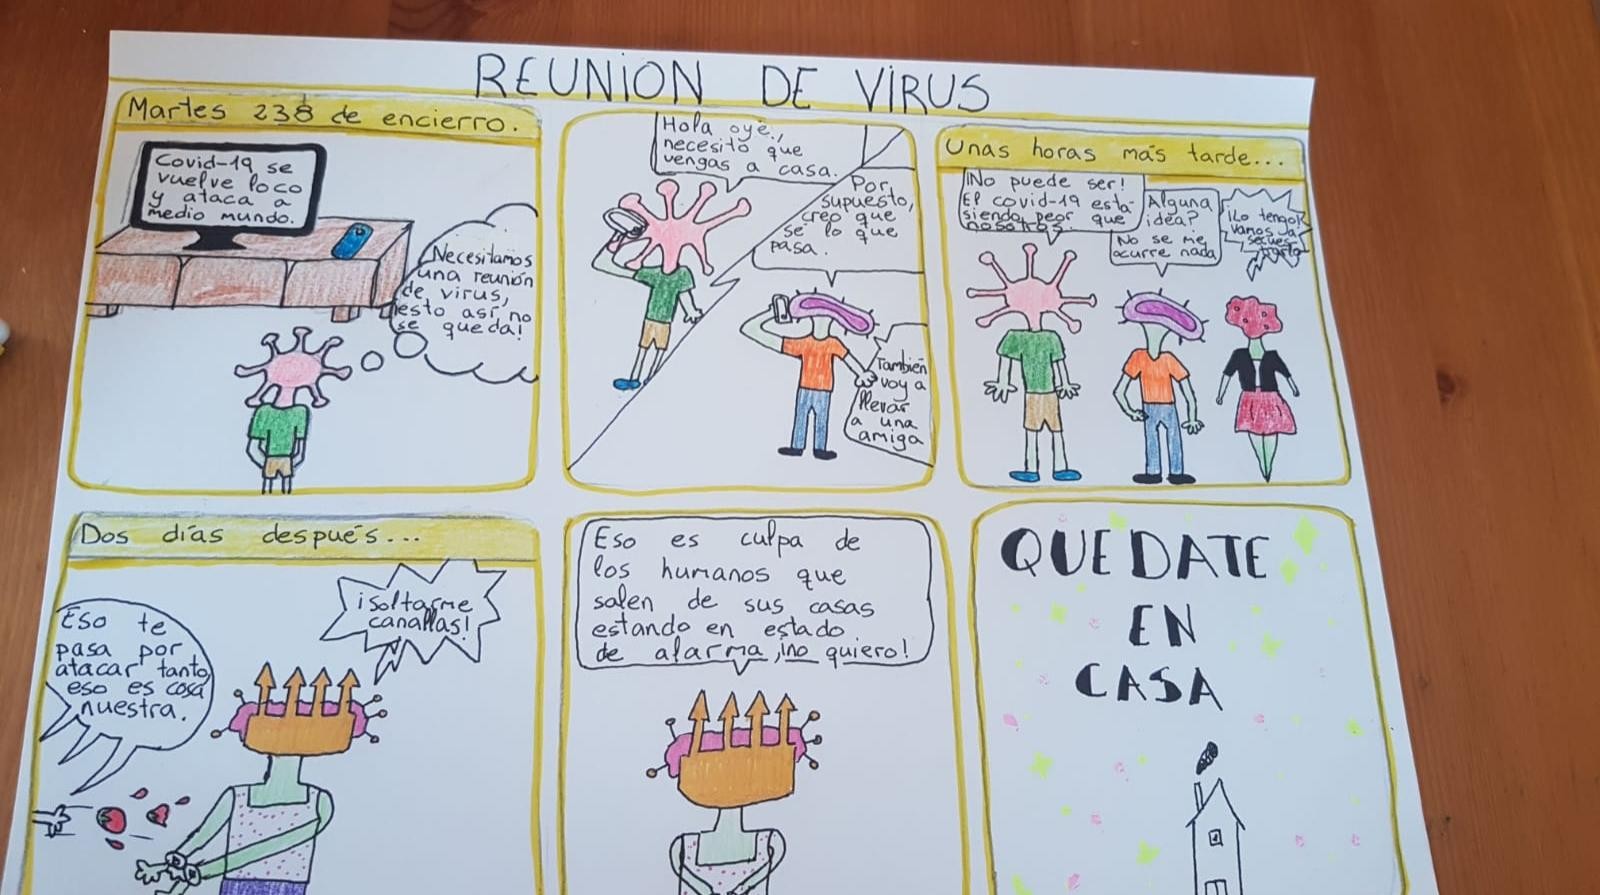 REUNION DE VIRUS
Martes 238 de encierro.
Covid-19 se
vuelve loco
y ataca a
medio mundo.
Necesitamos
una reunión
de virus,
¡esto así no
se queda!
Hola oye,
necesito que
vengas a casa.
Por
supuesto,
creo que
se lo que
pasa.
También
voy a
llevar
a una
amiga
Unas horas más tarde...
¡No puede ser!
El covid-19 está
siendo peor que
nosotros.
Alguna
idea?
No se me
ocurre nada
¡Lo tengo!
Vamos a
secues-
trarlo
Dos días después...
Eso te
pasa por
atacar tanto,
eso es cosa
nuestra.
¡Soltarme
canallas!
Eso es culpa de
los humanos que
salen de sus casas
estando en estado
de alarma, ¡no quiero!
QUEDATE
EN
CASA